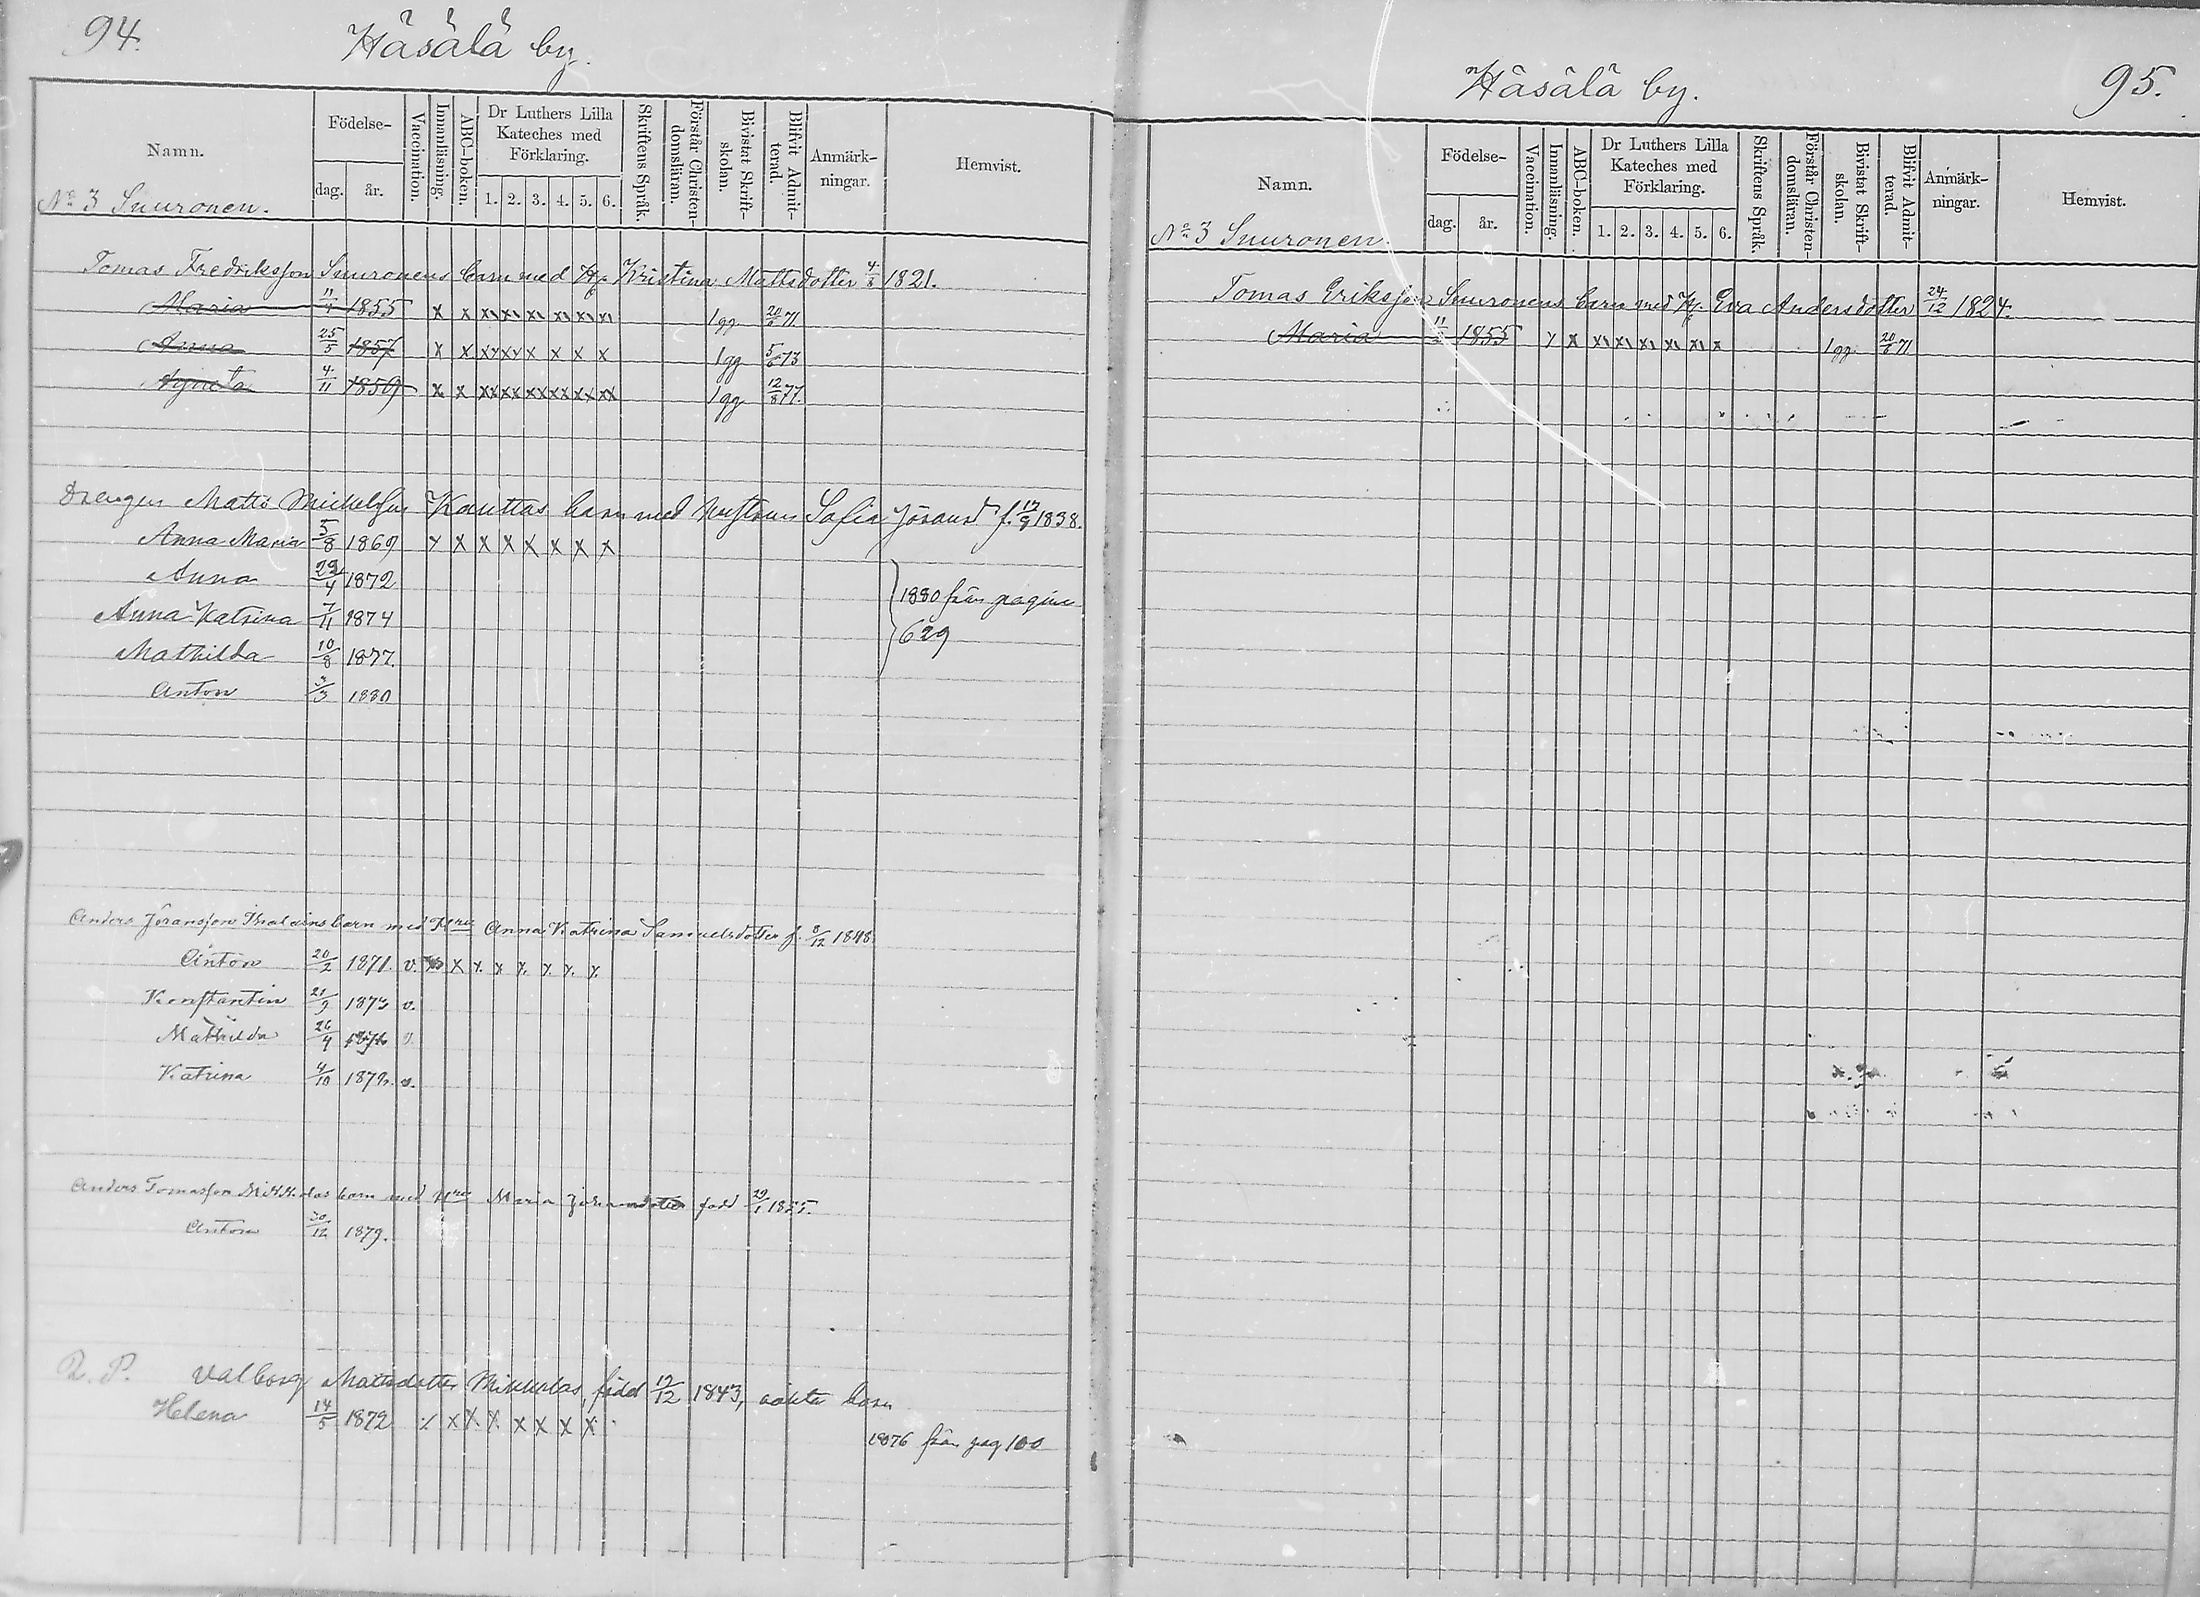 94.
Häsälä by.
Namn.
Födelse-
dag.
år.
Vaccination.
Innanläsning.
ABC-boken.
Dr Luthers Lilla
Kateches med
Förklaring.
1. 2. 3. 4. 5. 6.
Skriftens Språk.
Förstår Christen-
domsläran.
Bivistat Skrift-
skolan.
Blifvit Admit-
terad.
Anmärk-
ningar.
Hemvist.
No 3 Suuronen.
Tomas Fredriksson Suuronens barn med Hu. Kristina Mattsdotter 4/8 1821.
Maria 11/4 1855 x x xx xx xx xx xx xx 1 gg 20/6 71
Anna 25/5 1857 x x xx xx x x x x 1 gg 5/6 73
Agneta 4/11 1859 x x xx xx xx xx xx xx 1 gg 12/8 77.
Drengen Matts Mickelsson Kauttas barn med hustrun Sofia Jöransd f. 1838.
Anna Maria 5/8 1869 x x x x x x x x
Anna 29/4 1872
Anna Katrina 7/11 1874
1880 från pagina
629
Mathilda 10/8 1877.
Anton 3/3 1880
Anders Jöransson barn med Anna Katrina Samuelsdotter f. 8/12 1848
Anton 20/2 1871. v. x x x x x x x
Konstantin 21/9 1873 v.
Mathilda 26/4 v.
Katrina 4/10 1879. v.
Anders Tomasson barn med Maria född 29/1 1855.
Anton 30/12 1879.
Valborg Mattsdotter Mikkolas, född 12/12 1843, oäkta barn
Helena 14/5 1872 x x x x x x x x
1876 från pag 100
95.
Häsälä by.
Namn.
Födelse-
dag.
år.
Vaccination.
Innanläsning.
ABC-boken.
Dr Luthers Lilla
Kateches med
Förklaring.
1. 2. 3. 4. 5. 6.
Skriftens Språk.
Förstår Christen-
domsläran.
Bivistat Skrift-
skolan.
Blifvit Admit-
terad.
Anmärk-
ningar.
Hemvist.
No 3 Suuronen.
Tomas Eriksson Suuronens barn med Hu. Eva Andersdotter 24/12 1824.
Maria 1855 x x xx xx xx xx xx x 1 gg 20/6 71